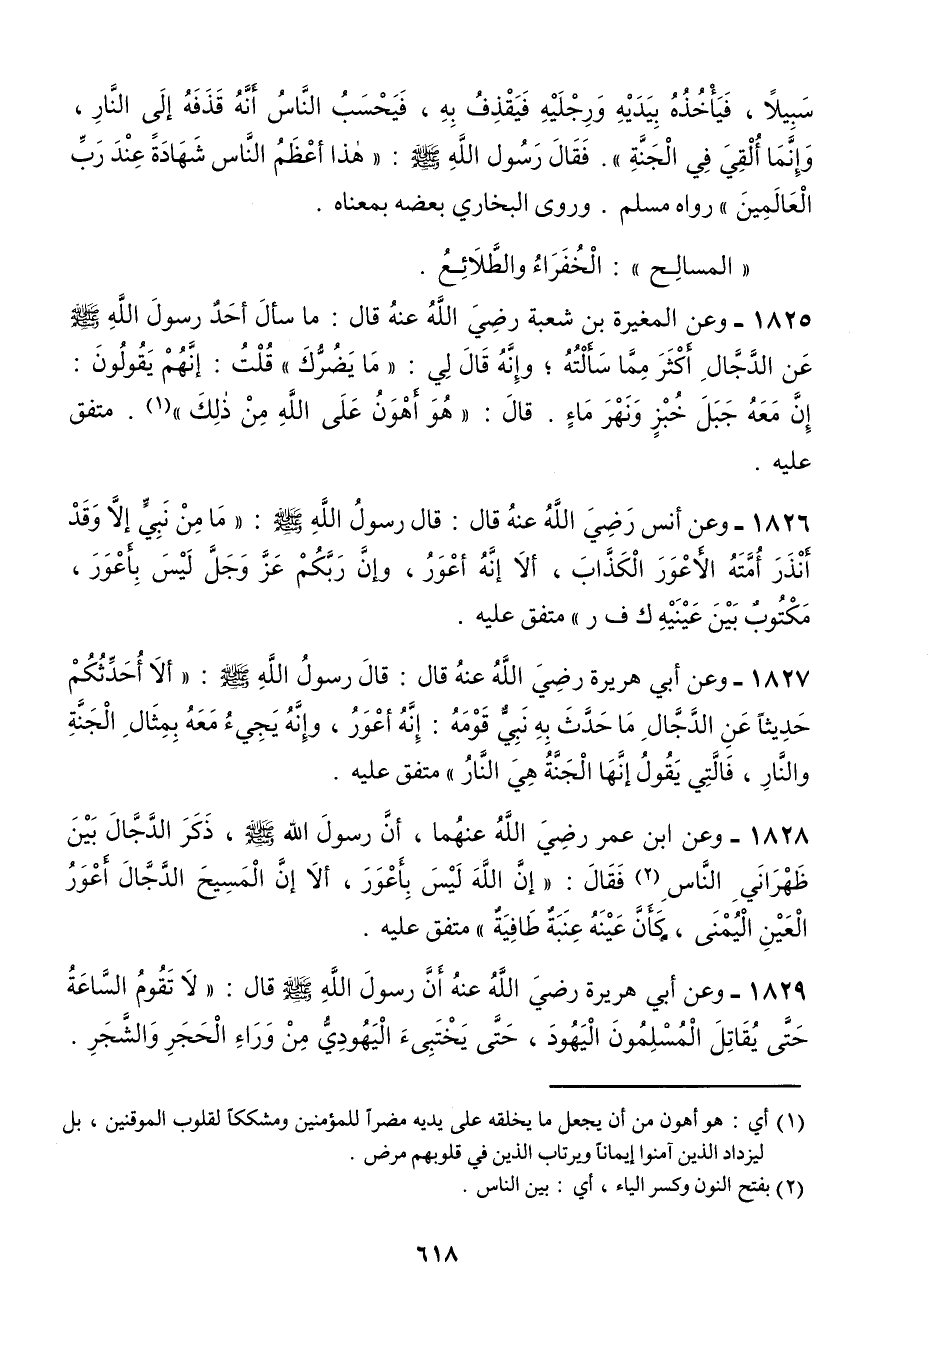 سَبِيلاً ، فَيَأْخُذُهُ بِيَدَيْهِ وَرِجْلَيْهِ فَيَقْذِفُ بِهِ ، فَيَحْسَبُ النَّاسُ أَنَّهُ قَذَفَهُ إلَى النَّارِ ،
وَإِنَّمَا أُلْقِيَ فِي الْجَنَّةِ » . فَقَالَ رَسُول اللَّهِ ﷺ : « هٰذا أعْظَمُ النَّاس شَهَادَةً عِنْدَ رَبِّ
الْعَالَمِينَ » رواه مسلم . وروى البخاري بعضه بمعناه .
« المسالِح » : الْخُفَرَاءُ والطَّلَائِعُ .
١٨٢٥ ـ وعن المغيرة بن شعبة رضِيَ اللَّهُ عنهُ قال : ما سألَ أحَدٌ رسولَ اللَّهِ ﷺ
عَن الدَّجَّالِ أَكْثَرَ مِمَّا سَأَلْتُهُ ؛ وإنَّهُ قَالَ لِي : « مَا يَضُرُّكَ » قُلْتُ : إنَّهُمْ يَقُولُونَ :
إِنَّ مَعَهُ جَبَلَ خُبْزٍ وَنَهْرَ مَاءٍ . قالَ : « هُوَ أَهْوَنُ عَلَى اللَّهِ مِنْ ذٰلِكَ »(١) . متفق
عليه .
١٨٢٦ ـ وعن أنس رَضِيَ اللَّهُ عنهُ قال : قال رسولُ اللَّهِ ﷺ : « مَا مِنْ نَبِيٍّ إلاَّ وَقَدْ
أَنْذَرَ أُمَّتَهُ الأَعْوَرَ الْكَذَّابَ ، ألاَ إنَّهُ أعْوَرُ ، وإنَّ رَبَّكُمْ عَزَّ وَجَلَّ لَيْسَ بِأَعْوَرَ ،
مَكْتُوبٌ بَيْنَ عَيْنَيْهِ ك ف ر » متفق عليه .
١٨٢٧ ـ وعن أبي هريرة رضِيَ اللَّهُ عنهُ قال : قالَ رسولُ اللَّهِ ﷺ : « ألاَ أُحَدِّثُكُمْ
حَدِيثاً عَنِ الدَّجَّالِ مَا حَدَّثَ بِهِ نَبِيٌّ قَوْمَهُ : إِنَّهُ أعْوَرُ ، وإنَّهُ يَجِيءُ مَعَهُ بِمِثَالِ الْجَنَّةِ
والنَّارِ ، فَالَّتِي يَقُولُ إنَّهَا الْجَنَّةُ هِيَ النَّارُ » متفق عليه .
١٨٢٨ ـ وعن ابن عمر رضِيَ اللَّهُ عنهُما ، أنَّ رسولَ الله ﷺ ، ذَكَرَ الدَّجَّالَ بَيْنَ
ظَهْرَانَيِ النَّاسِ(٢) فَقَالَ : « إنَّ اللَّهَ لَيْسَ بِأَعْوَرَ ، ألاَ إنَّ الْمَسِيحَ الدَّجَّالَ أَعْوَرُ
الْعَيْنِ الْيُمْنَى ، كَأَنَّ عَيْنَهُ عِنَبَةٌ طَافِيَةٌ » متفق عليه .
١٨٢٩ ـ وعن أبي هريرة رضيَ اللَّهُ عنهُ أنَّ رسولَ اللَّهِ ﷺ قال : « لاَ تَقُومُ السَّاعَةُ
حَتَّى يُقَاتِلَ الْمُسْلِمُونَ الْيَهُودَ ، حَتَّى يَخْتَبِىءَ الْيَهُودِيُّ مِنْ وَرَاءِ الْحَجَرِ وَالشَّجَرِ .
(١) أي : هو أهون من أن يجعل ما يخلقه على يديه مضراً للمؤمنين ومشككاً لقلوب الموقنين ، بل
ليزداد الذين آمنوا إيماناً ويرتاب الذين في قلوبهم مرض .
(٢) بفتح النون وكسر الياء ، أي : بين الناس .
٦١٨